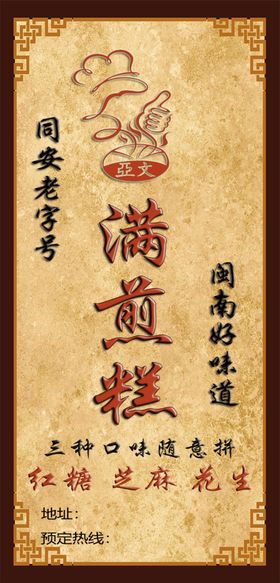 亞文
同安老字号
满煎糕
闽南好味道
三种口味随意拼
红糖 芝麻 花生
地址：
预定热线：